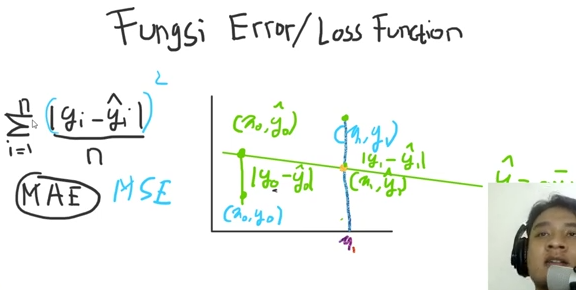 Fungsi Error/Loss Function
n 2
Σ (|yᵢ - ŷᵢ|)
i=1 n
MAE MSE
(x₀, ŷ₀)
(x₁, y₁)
|y₀ - ŷ₀|
|y₁ - ŷ₁|
(x₁, ŷ₁)
(x₀, y₀)
ŷ =